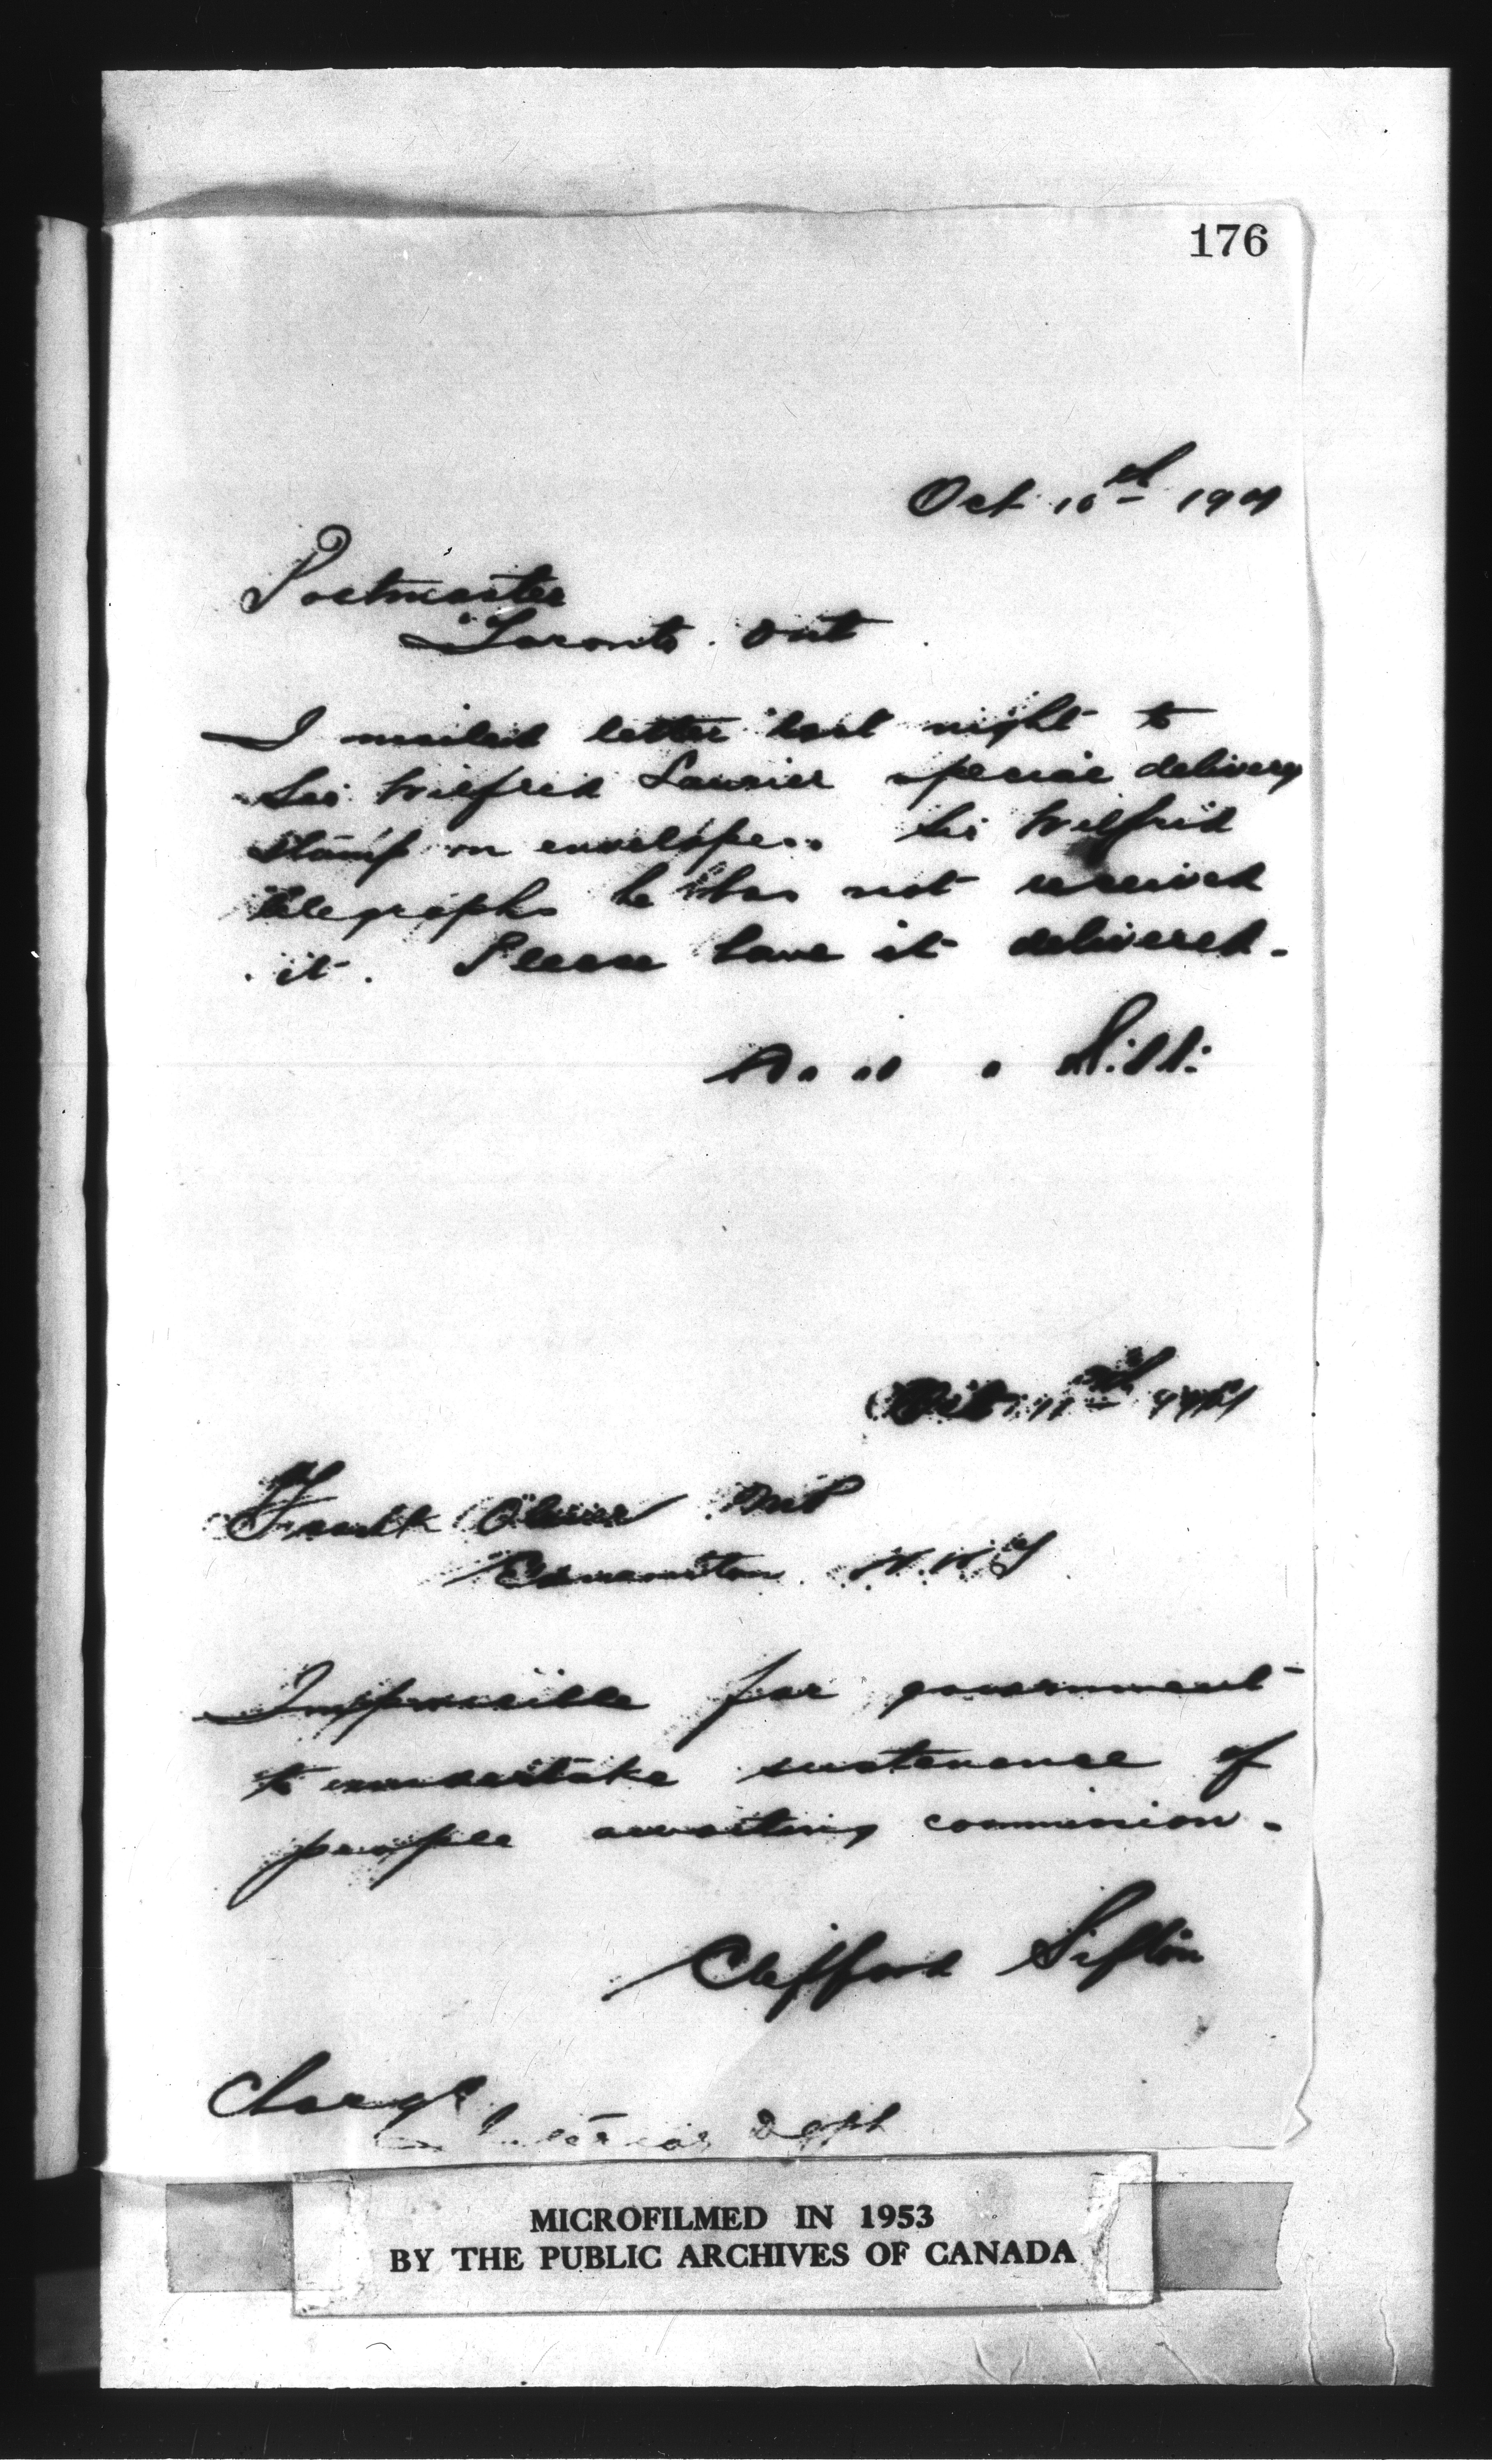 176
Oct 10th 1901
Postmaster
Toronto. Ont
I mailed letter last night to
Sir Wilfrid Laurier special delivery
stamp on envelope. Sir Wilfrid
telegraphs he has not received
it. Please have it delivered.
Oct 11th 1901
Frank Oliver MP
Edmonton. N.W.T
Impossible for government
to undertake sustenance of
people awaiting commission.
Clifford Sifton
Charge
Interior Dept
MICROFILMED IN 1953
BY THE PUBLIC ARCHIVES OF CANADA